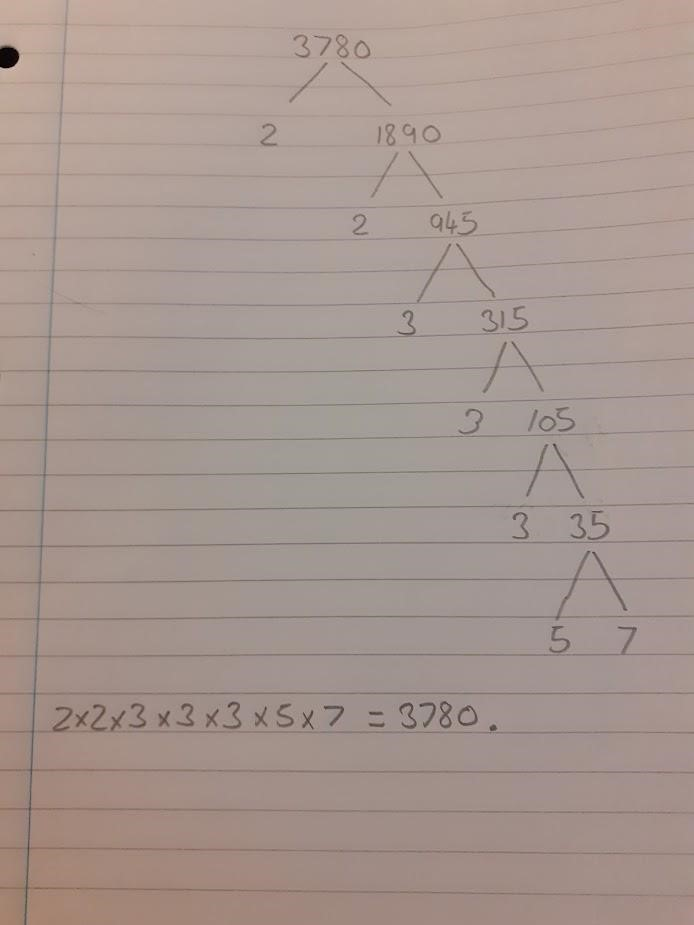 3780
2 1890
2 945
3 315
3 105
3 35
5 7
2×2×3×3×3×5×7 = 3780.